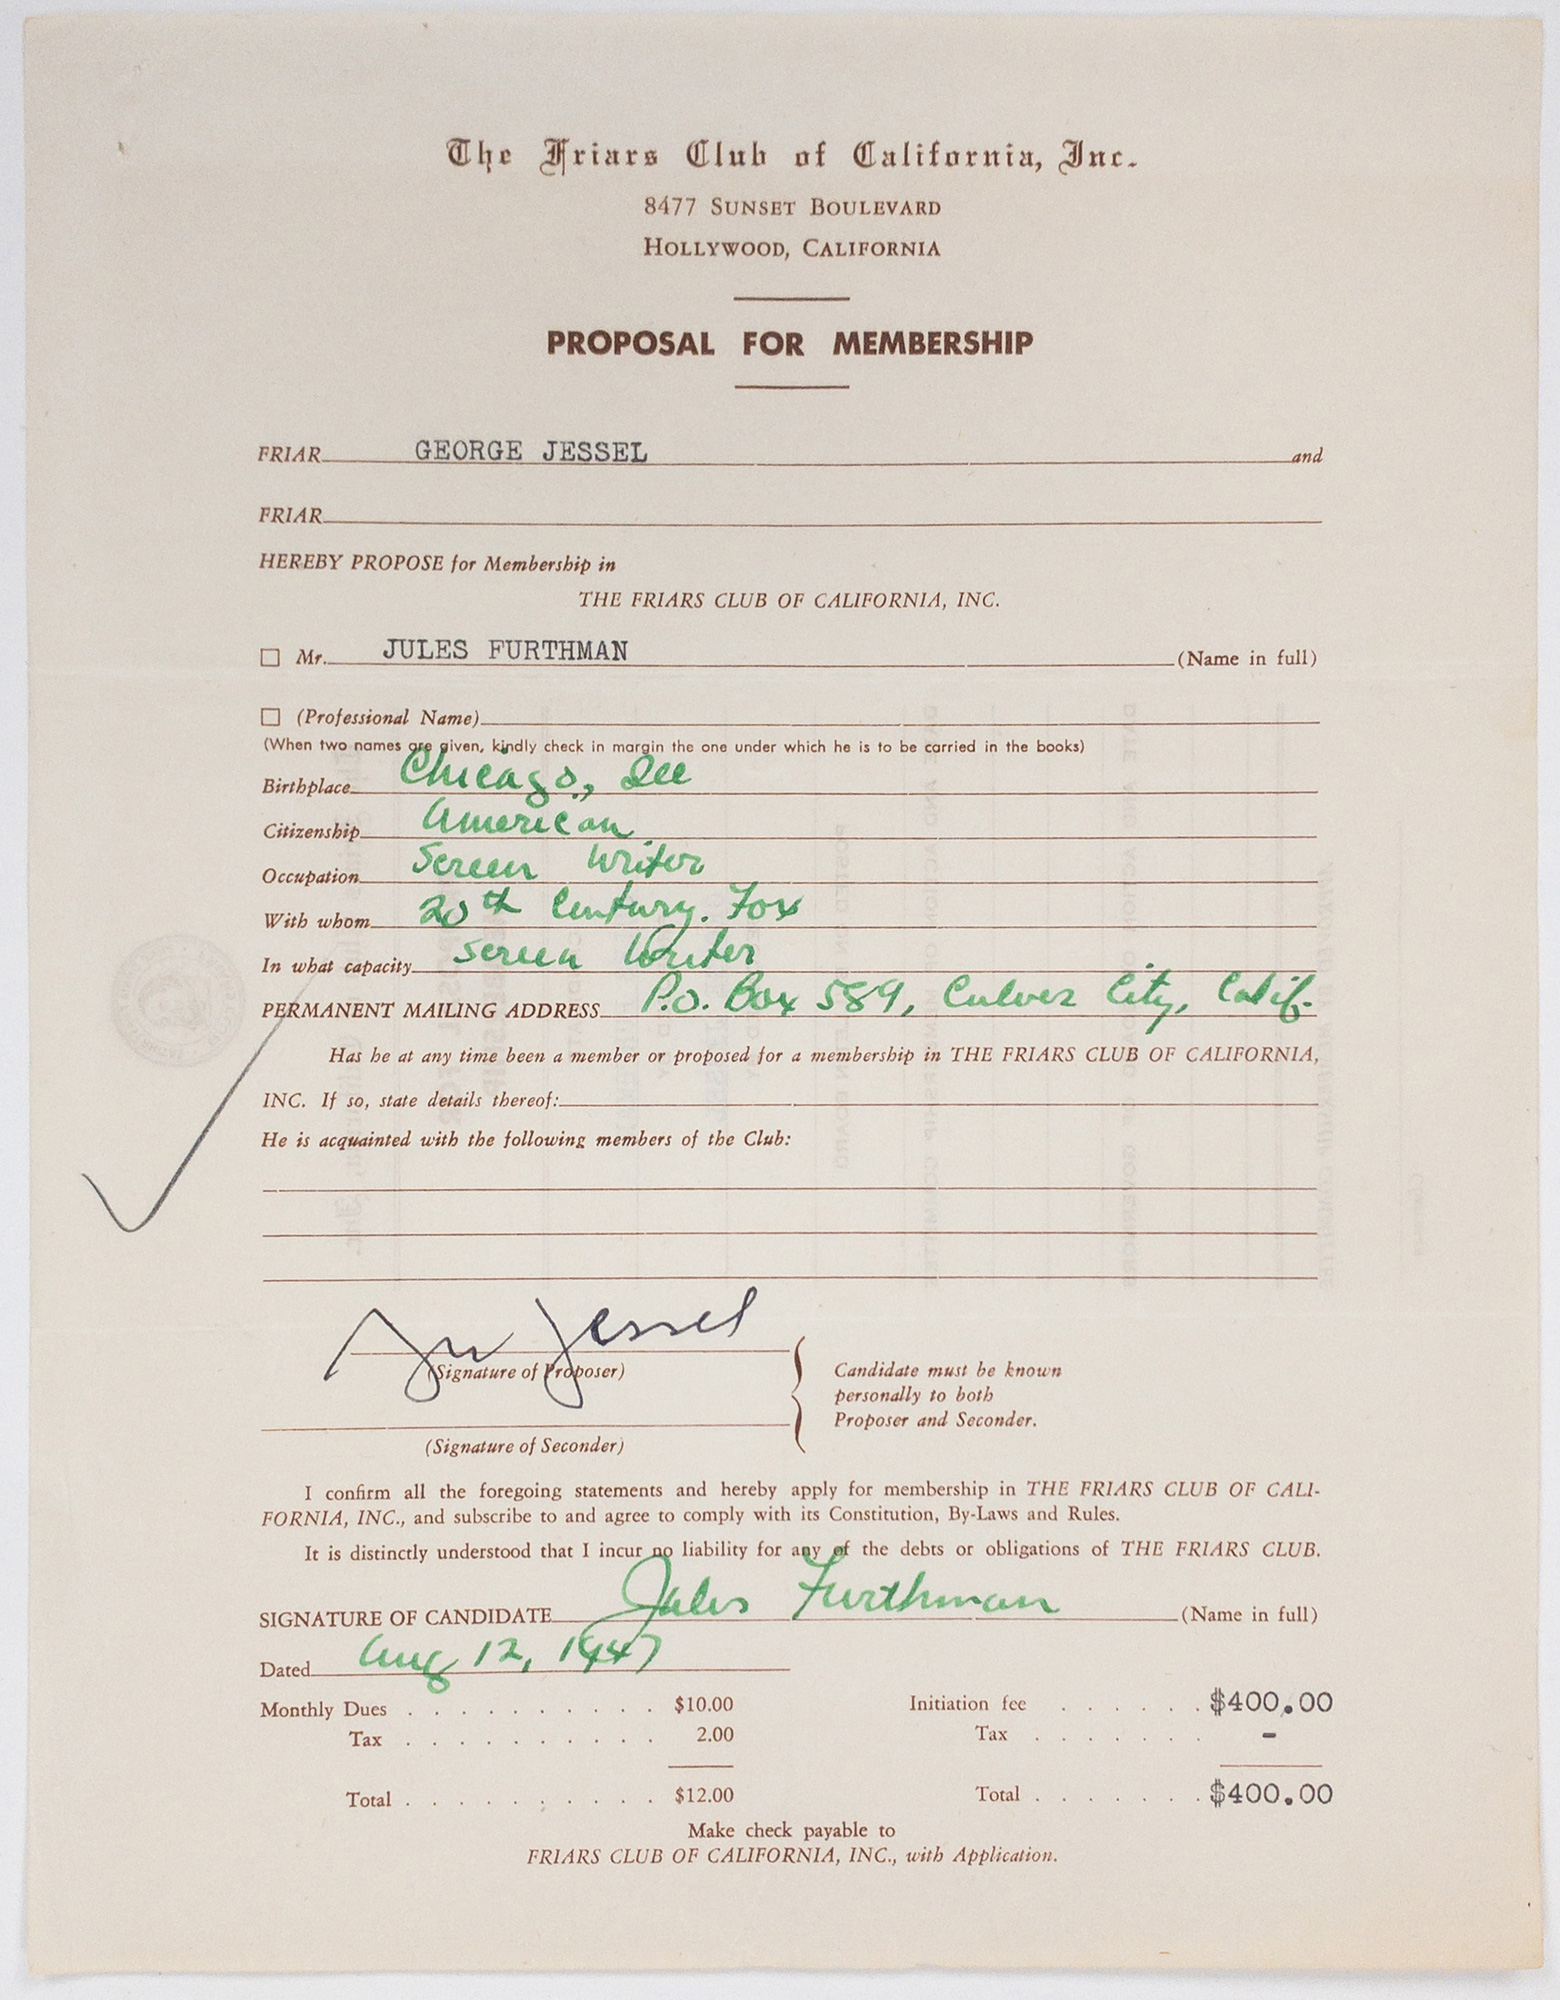 The Friars Club of California, Inc.
8477 SUNSET BOULEVARD
HOLLYWOOD, CALIFORNIA
PROPOSAL FOR MEMBERSHIP
FRIAR GEORGE JESSEL and
FRIAR
HEREBY PROPOSE for Membership in
THE FRIARS CLUB OF CALIFORNIA, INC.
Mr. JULES FURTHMAN (Name in full)
(Professional Name)
(When two names are given, kindly check in margin the one under which he is to be carried in the books)
Birthplace Chicago, Ill
Citizenship American
Occupation Screen Writer
With whom 20th Century. Fox
In what capacity Screen Writer
PERMANENT MAILING ADDRESS P.O. Box 589, Culver City, Calif.
Has he at any time been a member or proposed for a membership in THE FRIARS CLUB OF CALIFORNIA,
INC. If so, state details thereof:
He is acquainted with the following members of the Club:
Jessel
(Signature of Proposer)
Candidate must be known
personally to both
Proposer and Seconder.
(Signature of Seconder)
I confirm all the foregoing statements and hereby apply for membership in THE FRIARS CLUB OF CALI-
FORNIA, INC., and subscribe to and agree to comply with its Constitution, By-Laws and Rules.
It is distinctly understood that I incur no liability for any of the debts or obligations of THE FRIARS CLUB.
SIGNATURE OF CANDIDATE Jules Furthman (Name in full)
Dated Aug 12, 1947
Monthly Dues . . . . . . . . . . $10.00 Initiation fee . . . . . . $400.00
Tax . . . . . . . . . . 2.00 Tax . . . . . . . -
Total . . . . . . . . . . $12.00 Total . . . . . . . $400.00
Make check payable to
FRIARS CLUB OF CALIFORNIA, INC., with Application.